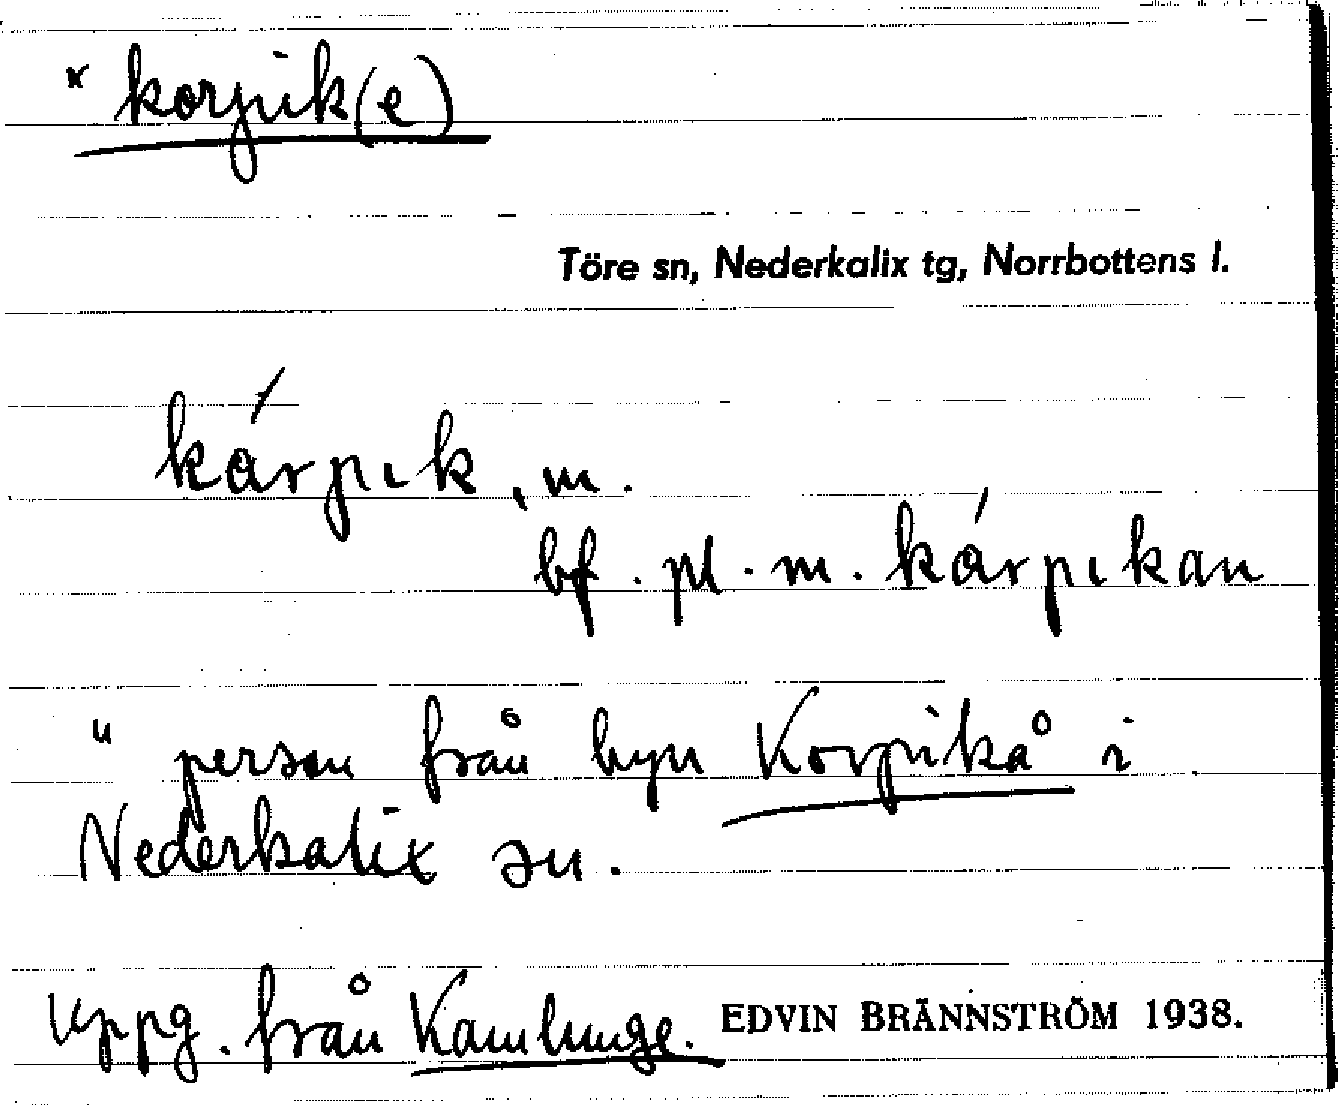 * korpik(e)
Töre sn, Nederkalix tg, Norrbottens l.
kárpɩk, m.
bf. pl. m. kárpɩkan
" person från byn Korpikå i
Nederkalix sn.
Uppg. från Kamlunge. EDVIN BRÄNNSTRÖM 1938.